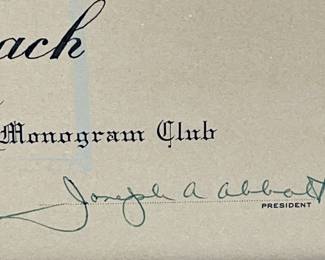 ach
Monogram Club
Joseph A Abbott
PRESIDENT